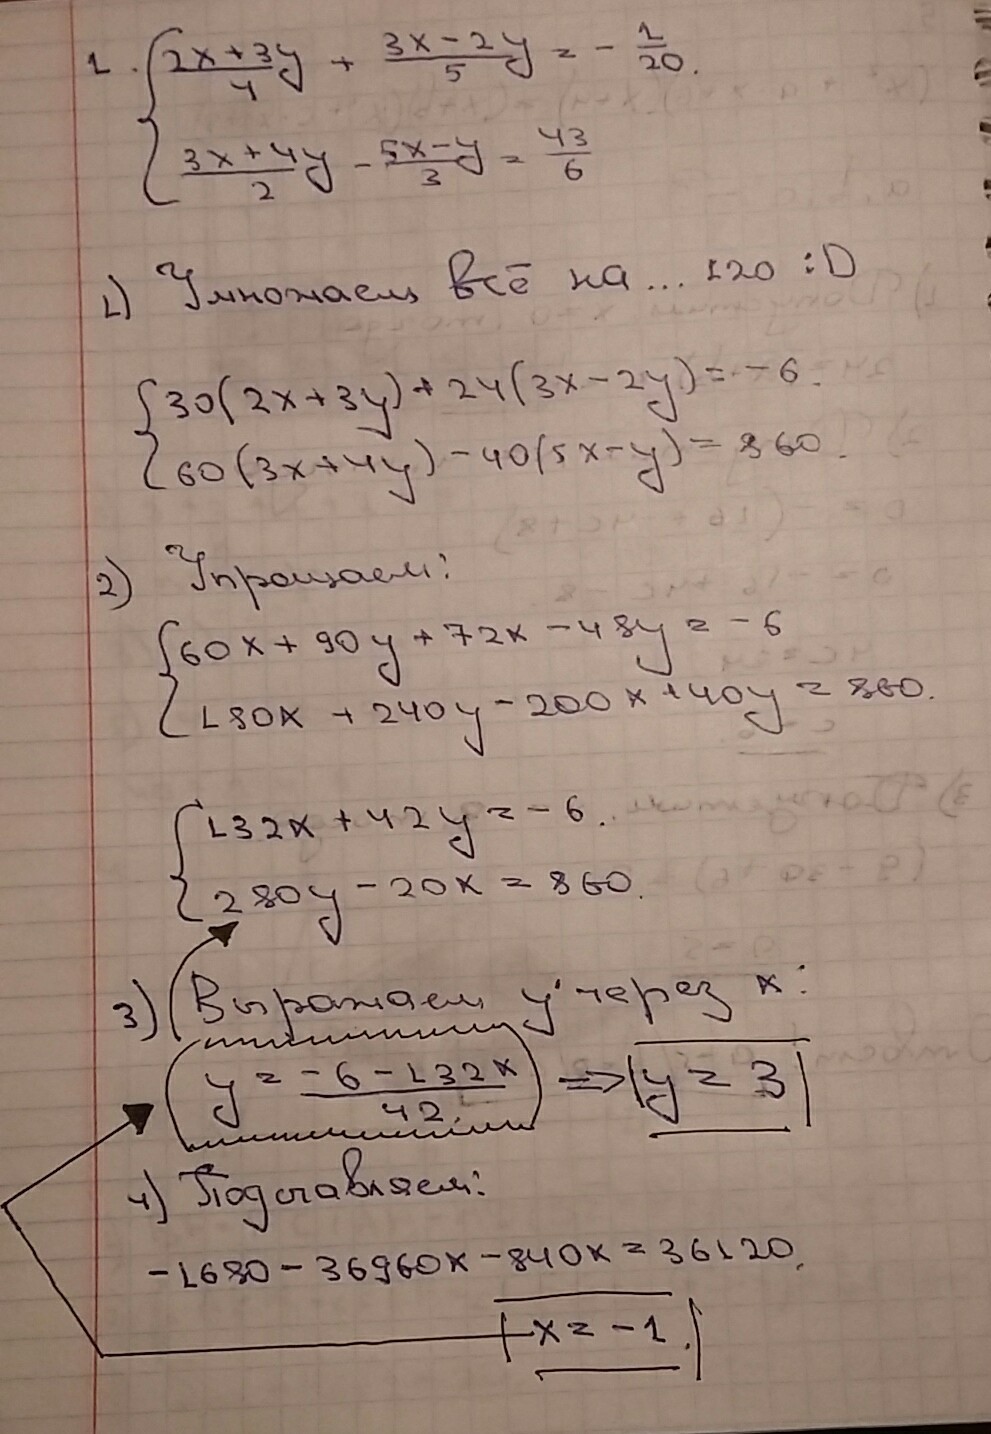 1. { (2x+3y)/4 + (3x-2y)/5 = - 1/20.
(3x+4y)/2 - (5x-y)/3 = 43/6
1) Умножаем всё на... 120 :D
{ 30(2x+3y)+24(3x-2y)=-6.
60(3x+4y)-40(5x-y)=860.
2) Упрощаем:
{ 60x+90y+72x-48y=-6
180x+240y-200x+40y=860.
{ 132x+42y=-6.
280y-20x=860.
3) Выражаем y через x:
y = (-6-132x)/42. => y=3
4) Подставляем:
-1680-36960x-840x=36120.
x=-1.